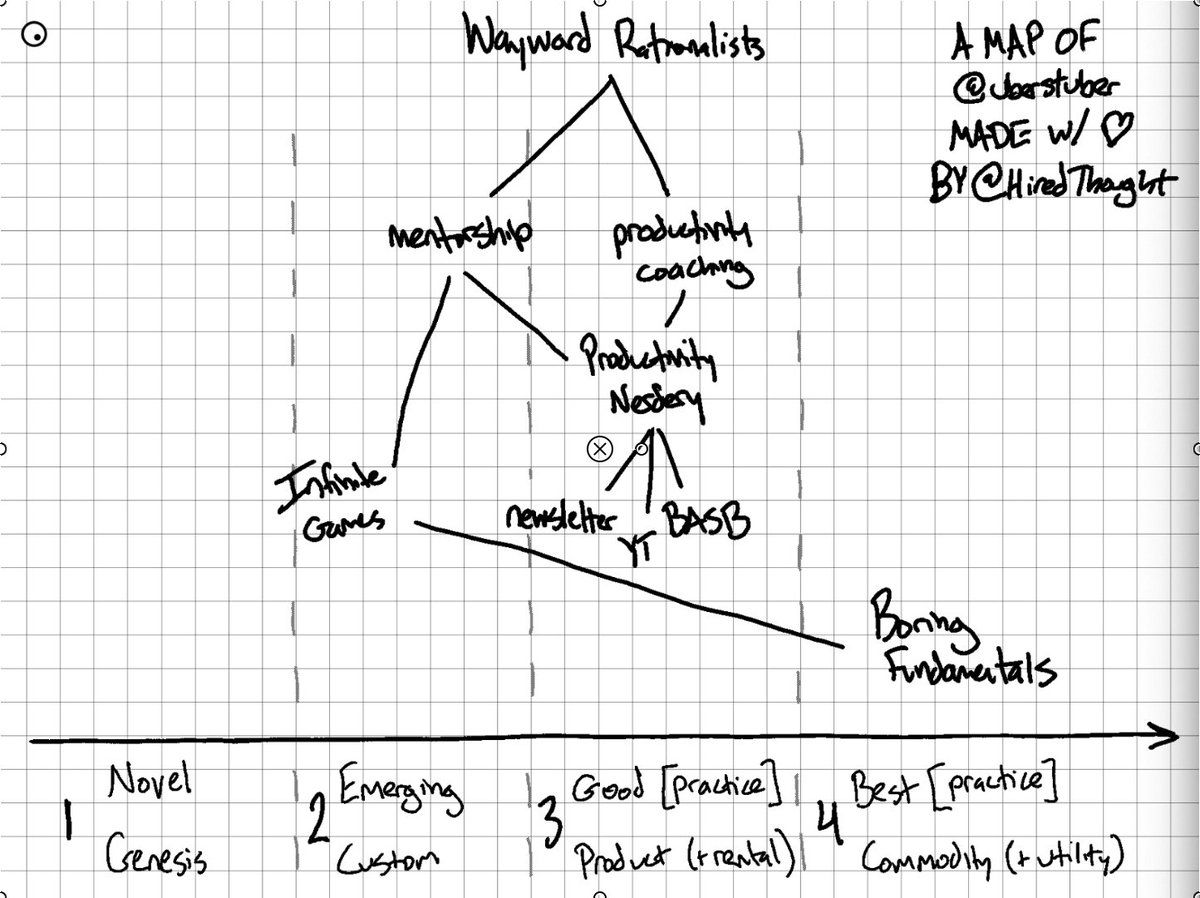 Wayward Rationalists
A MAP OF
@uberstuber
MADE W/ ♡
BY @HiredThought
mentorship
productivity
coaching
Productivity
Nerdery
Infinite
Games
newsletter
YT
BASB
Boring
Fundamentals
1
Novel
Genesis
2
Emerging
Custom
3
Good [practice]
Product (+rental)
4
Best [practice]
Commodity (+utility)